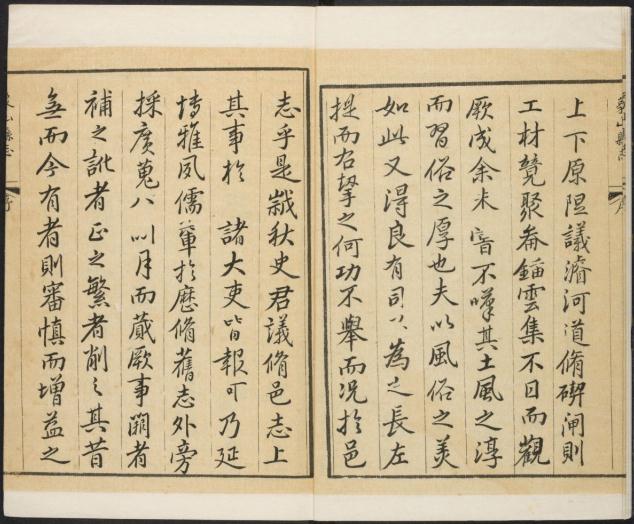 象山縣志
序
上下原隰議濬河道脩碶閘則
工材競聚畚鍤雲集不日而觀
厥成余未嘗不嘆其土風之淳
而習俗之厚也夫以風俗之美
如此又得良有司以為之長左
提而右挈之何功不舉而况於邑
志乎是歲秋史君議脩邑志上
其事於 諸大吏皆報可乃延
博雅夙儒輩於歷脩舊志外旁
採廣蒐八以月而蕆厥事闕者
補之訛者正之繁者削之其昔
無而今有者則審慎而增益之
山縣志
序